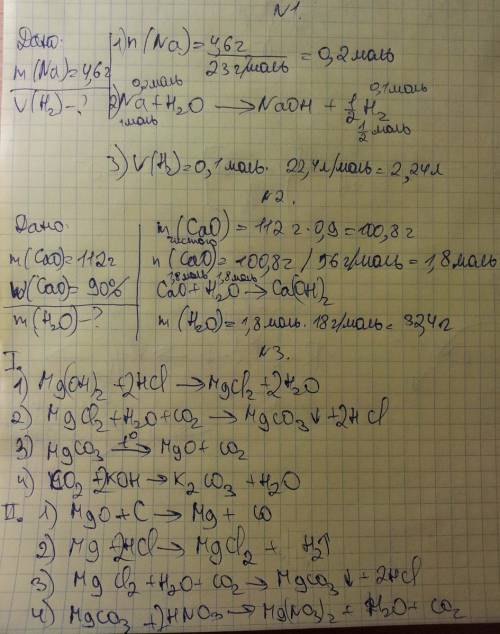 №1.
Дано: 1) n(Na) = 4,6г / 23 г/моль = 0,2 моль
m(Na) = 4,6г
V(H₂) - ?
0,2 моль 0,1 моль
2) Na + H₂O → NaOH + ½ H₂
1 моль ½ моль
3) V(H₂) = 0,1 моль · 22,4 л/моль = 2,24 л
№2.
Дано: m(CaO) = 112 г · 0,9 = 100,8 г
чистого
m(CaO) = 112 г n(CaO) = 100,8 г / 56 г/моль = 1,8 моль
1,8 моль 1,8 моль
W(CaO) = 90% CaO + H₂O → Ca(OH)₂
m(H₂O) - ? m(H₂O) = 1,8 моль · 18 г/моль = 32,4 г
№3.
I.
1) Mg(OH)₂ + 2HCl → MgCl₂ + 2H₂O
2) MgCl₂ + H₂O + CO₂ → MgCO₃↓ + 2HCl
3) MgCO₃ t° → MgO + CO₂
4) CO₂ + 2KOH → K₂CO₃ + H₂O
II. 1) MgO + C → Mg + CO
2) Mg + 2HCl → MgCl₂ + H₂↑
3) MgCl₂ + H₂O + CO₂ → MgCO₃↓ + 2HCl
4) MgCO₃ + 2HNO₃ → Mg(NO₃)₂ + H₂O + CO₂